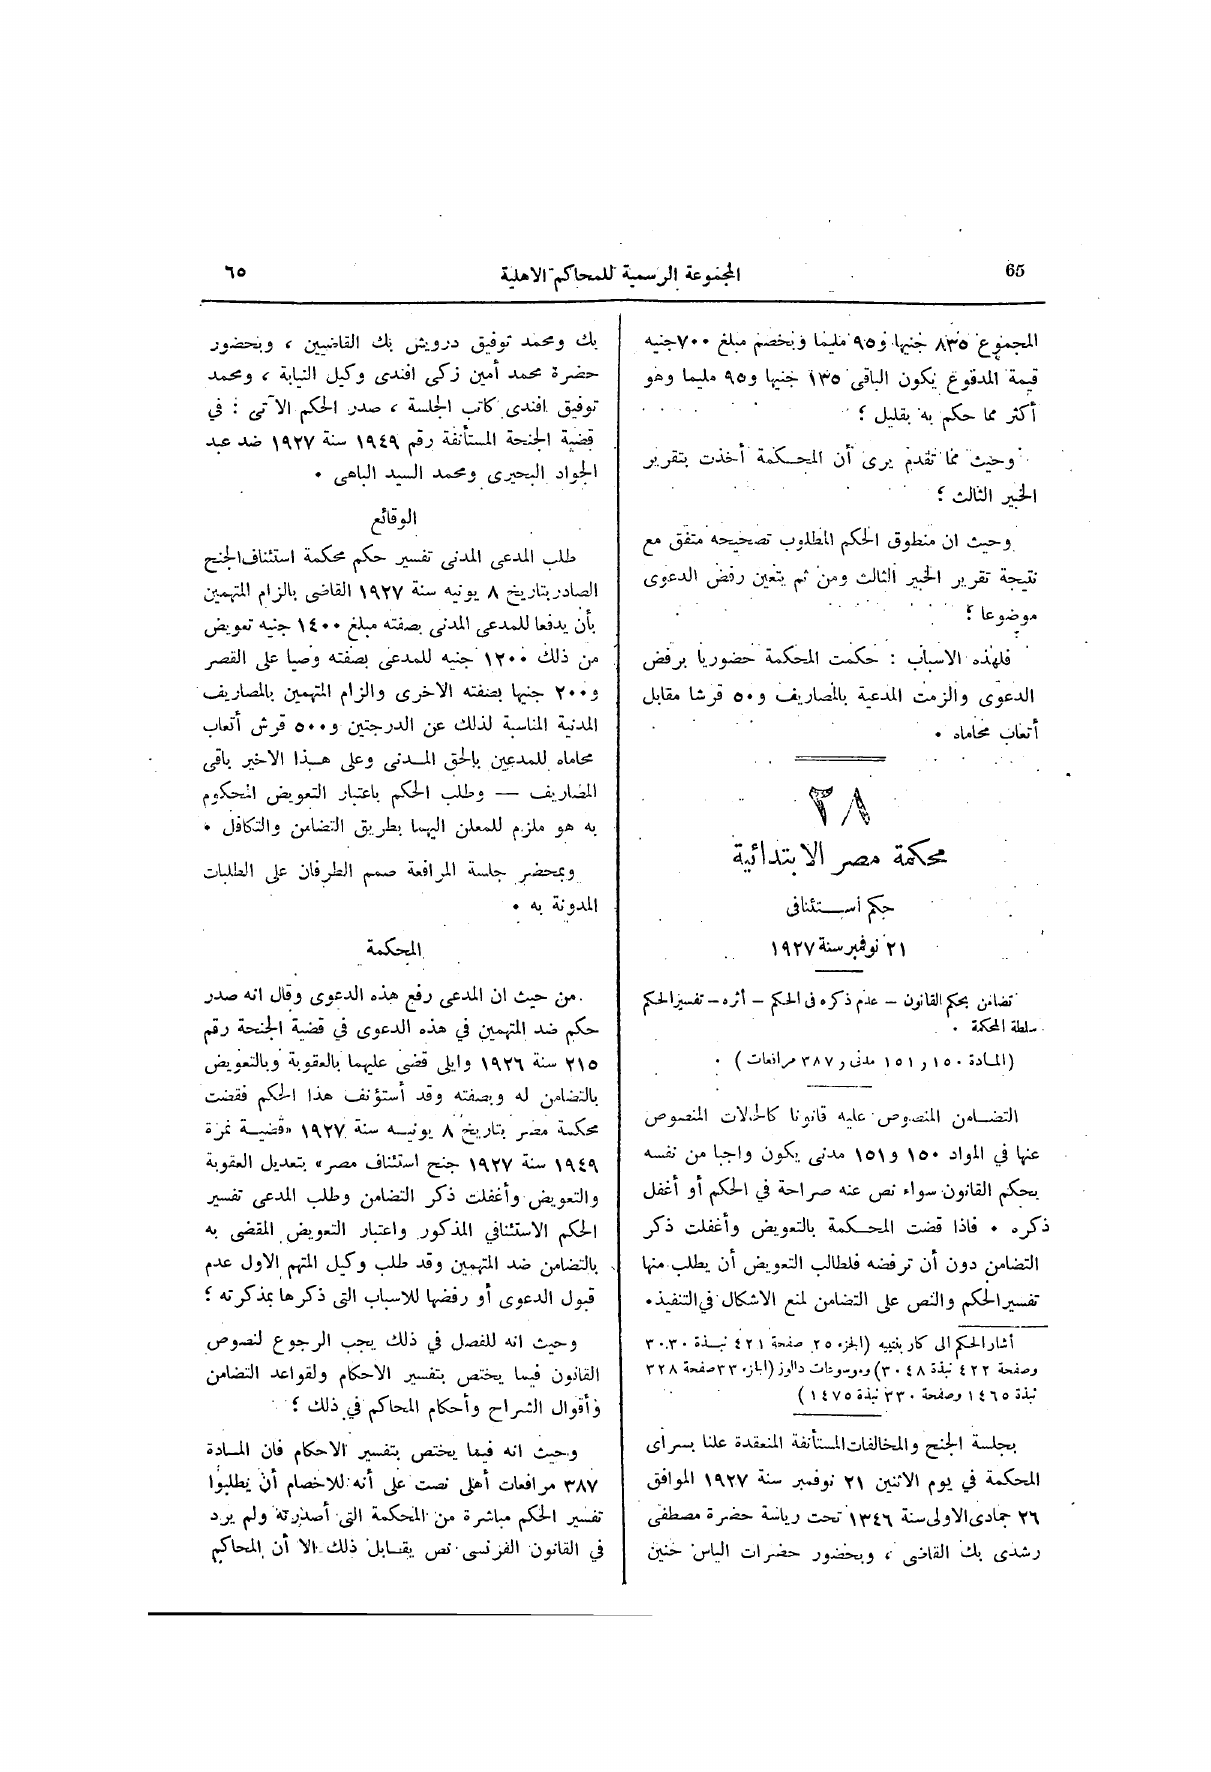 65
المجموعة الرسمية للمحاكم الاهلية
٦٥
المجموع ٨٣٥ جنيها و٩٥ مليما وبخصم مبلغ ٧٠٠ جنيه
قيمة المدفوع يكون الباقى ١٣٥ جنيها و٩٥ مليما وهو
أكثر مما حكم به بقليل ؛
وحيث مما تقدم يرى أن المحكمة أخذت بتقرير
الخبير الثالث ؛
وحيث ان منطوق الحكم المطلوب تصحيحه متفق مع
نتيجة تقرير الخبير الثالث ومن ثم يتعين رفض الدعوى
موضوعا ؛
فلهذه الاسباب : حكمت المحكمة حضوريا برفض
الدعوى والزمت المدعية بالمصاريف و٥٠ قرشا مقابل
أتعاب محاماه ٠
٣٨
محكمة مصر الابتدائية
حكم استئنافى
٢١ نوفمبر سنة ١٩٢٧
تضامن بحكم القانون – عدم ذكره فى الحكم – أثره – تفسير الحكم
سلطة المحكمة ٠
(المادة ١٥٠ و ١٥١ مدنى و ٣٨٧ مرافعات) ٠
التضامن المنصوص عليه قانونا كالحالات المنصوص
عنها في المواد ١٥٠ و١٥١ مدنى يكون واجبا من نفسه
بحكم القانون سواء نص عنه صراحة في الحكم أو أغفل
ذكره ٠ فاذا قضت المحكمة بالتعويض وأغفلت ذكر
التضامن دون أن ترفضه فلطالب التعويض أن يطلب منها
تفسير الحكم والنص على التضامن لمنع الاشكال في التنفيذ٠
أشار الحكم الى كاربنتييه (الجزء ٢٥ صفحة ٤٢١ نبذة ٣٠٣٠
وصفحة ٤٢٢ نبذة ٣٠٤٨) وموسوعات دالوز (الجزء ٣٣ صفحة ٣٢٨
نبذة ١٤٦٥ وصفحة ٣٣٠ نبذة ١٤٧٥)
بجلسة الجنح والمخالفات المستأنفة المنعقدة علنا بسراى
المحكمة في يوم الاثنين ٢١ نوفمبر سنة ١٩٢٧ الموافق
٢٦ جمادى الاولى سنة ١٣٤٦ تحت رياسة حضرة مصطفى
رشدى بك القاضى ، وبحضور حضرات الياس حنين
بك ومحمد توفيق درويش بك القاضيين ، وبحضور
حضرة محمد أمين زكى افندى وكيل النيابة ، ومحمد
توفيق افندى كاتب الجلسة ، صدر الحكم الآتى : في
قضية الجنحة المستأنفة رقم ١٩٤٩ سنة ١٩٢٧ ضد عبد
الجواد البحيرى ومحمد السيد الباهى ٠
الوقائع
طلب المدعى المدنى تفسير حكم محكمة استئناف الجنح
الصادر بتاريخ ٨ يونيه سنة ١٩٢٧ القاضى بالزام المتهمين
بأن يدفعا للمدعى المدنى بصفته مبلغ ١٤٠٠ جنيه تعويض
من ذلك ١٢٠٠ جنيه للمدعى بصفته وصيا على القصر
و٢٠٠ جنيها بصفته الاخرى والزام المتهمين بالمصاريف
المدنية المناسبة لذلك عن الدرجتين و٥٠٠ قرش أتعاب
محاماه للمدعين بالحق المدنى وعلى هذا الاخير باقى
المصاريف — وطلب الحكم باعتبار التعويض المحكوم
به هو ملزم للمعلن اليهما بطريق التضامن والتكافل ٠
وبمحضر جلسة المرافعة صمم الطرفان على الطلبات
المدونة به ٠
المحكمة
من حيث ان المدعى رفع هذه الدعوى وقال انه صدر
حكم ضد المتهمين في هذه الدعوى في قضية الجنحة رقم
٢١٥ سنة ١٩٢٦ وايلى قضى عليهما بالعقوبة وبالتعويض
بالتضامن له وبصفته وقد أستؤنف هذا الحكم فقضت
محكمة مصر بتاريخ ٨ يونيه سنة ١٩٢٧ «قضية نمرة
١٩٤٩ سنة ١٩٢٧ جنح استئناف مصر» بتعديل العقوبة
والتعويض وأغفلت ذكر التضامن وطلب المدعى تفسير
الحكم الاستئنافي المذكور واعتبار التعويض المقضى به
بالتضامن ضد المتهمين وقد طلب وكيل المتهم الاول عدم
قبول الدعوى أو رفضها للاسباب التى ذكرها بمذكرته ؛
وحيث انه للفصل في ذلك يجب الرجوع لنصوص
القانون فيما يختص بتفسير الاحكام ولقواعد التضامن
وأقوال الشراح وأحكام المحاكم في ذلك ؛
وحيث انه فيما يختص بتفسير الاحكام فان المادة
٣٨٧ مرافعات أهلى نصت على أنه للاخصام أن يطلبوا
تفسير الحكم مباشرة من المحكمة التى أصدرته ولم يرد
في القانون الفرنسى نص يقابل ذلك الا أن المحاكم